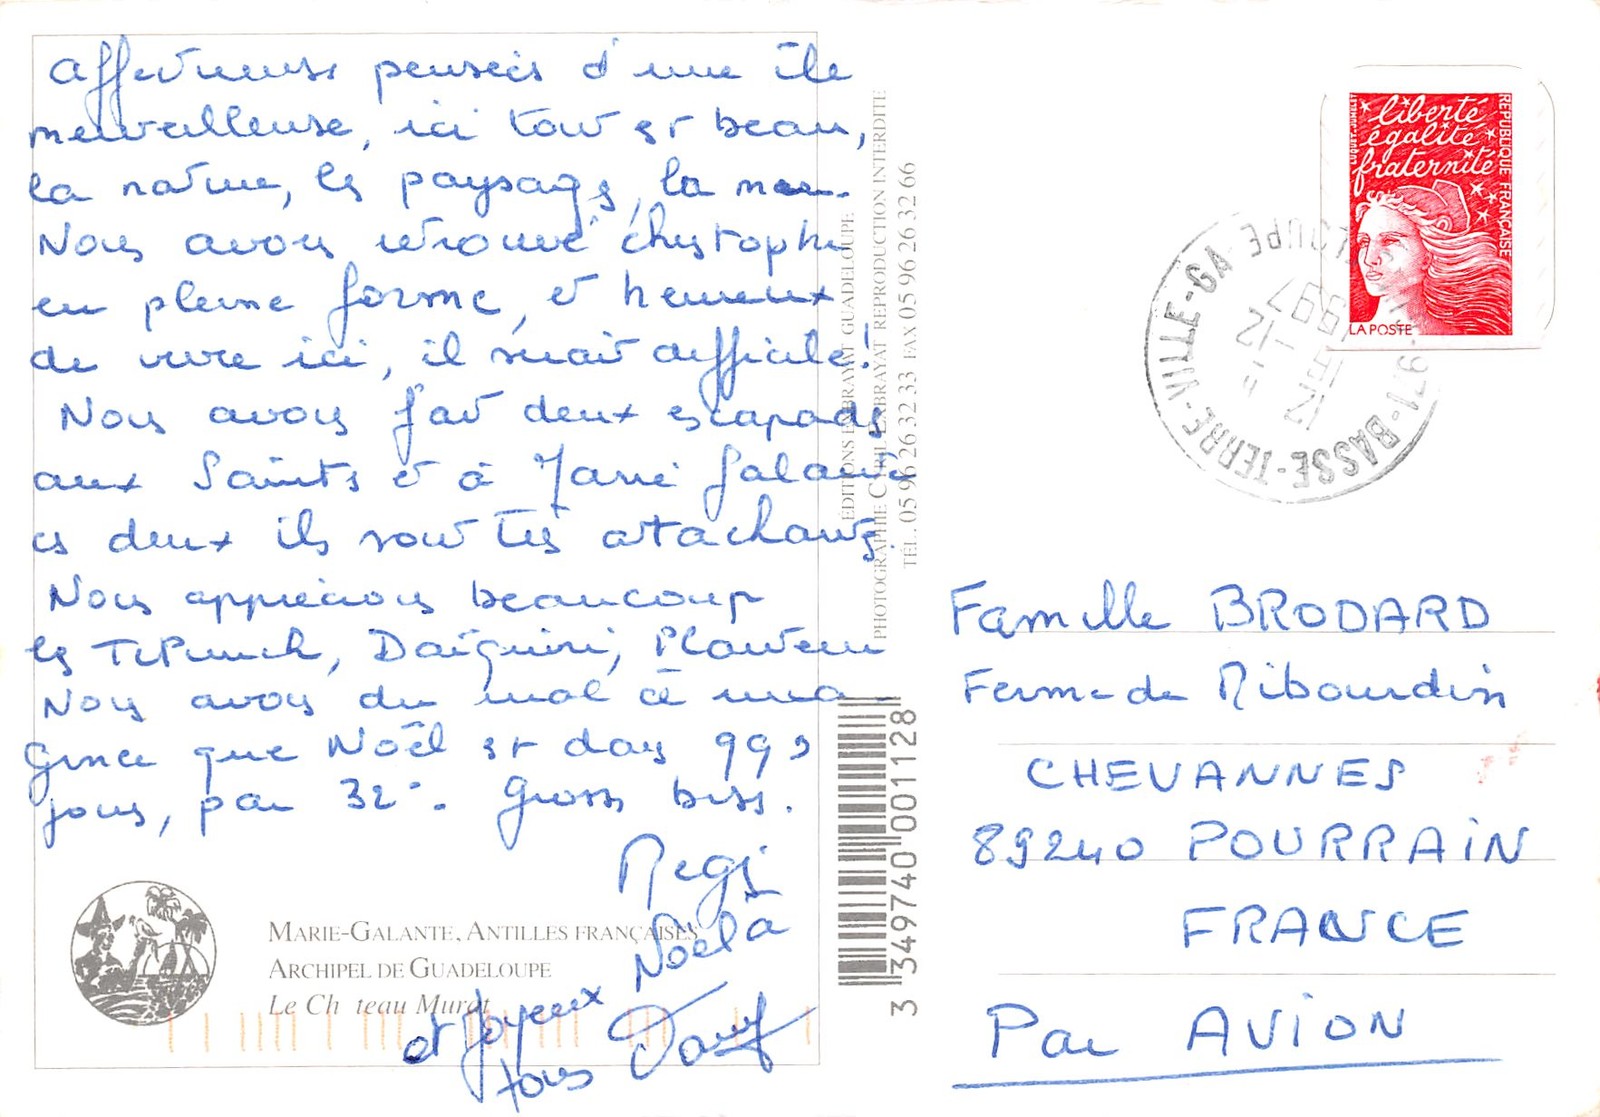 Affectueuses pensées d'une île
merveilleuse, ici tout est beau,
la nature, les paysages, la mer.
Nous avons retrouvé Christophe
en pleine forme, et heureux
de vivre ici, il serait difficile!
Nous avons fait deux escapades
aux Saints et à Marie Galante
ces deux îls sont très attachants,
Nous apprécions beaucoup
les TiPunch, Daïquiri, Planteur
Nous avons du mal à ima
giner que Noël est dans 99
jours, par 32°. Grosses bises.
Régis
et Joyeux Noël à
tous
MARIE-GALANTE, ANTILLES FRANÇAISES
ARCHIPEL DE GUADELOUPE
Le Ch teau Murat
ÉDITIONS EXBRAYAT GUADELOUPE
PHOTOGRAPHIE CYRIL EXBRAYAT REPRODUCTION INTERDITE
TÉL. 05 96 26 32 33 FAX 05 96 26 32 66
3 349740 001128
liberté
égalité
fraternité
RÉPUBLIQUE FRANÇAISE
LUQUET-JUMELET
LA POSTE
971-BASSE-TERRE-VILLE-GA
15 -12
1997
Famille BRODARD
Ferme de Ribourdin
CHEVANNES
89240 POURRAIN
FRANCE
Par AVION